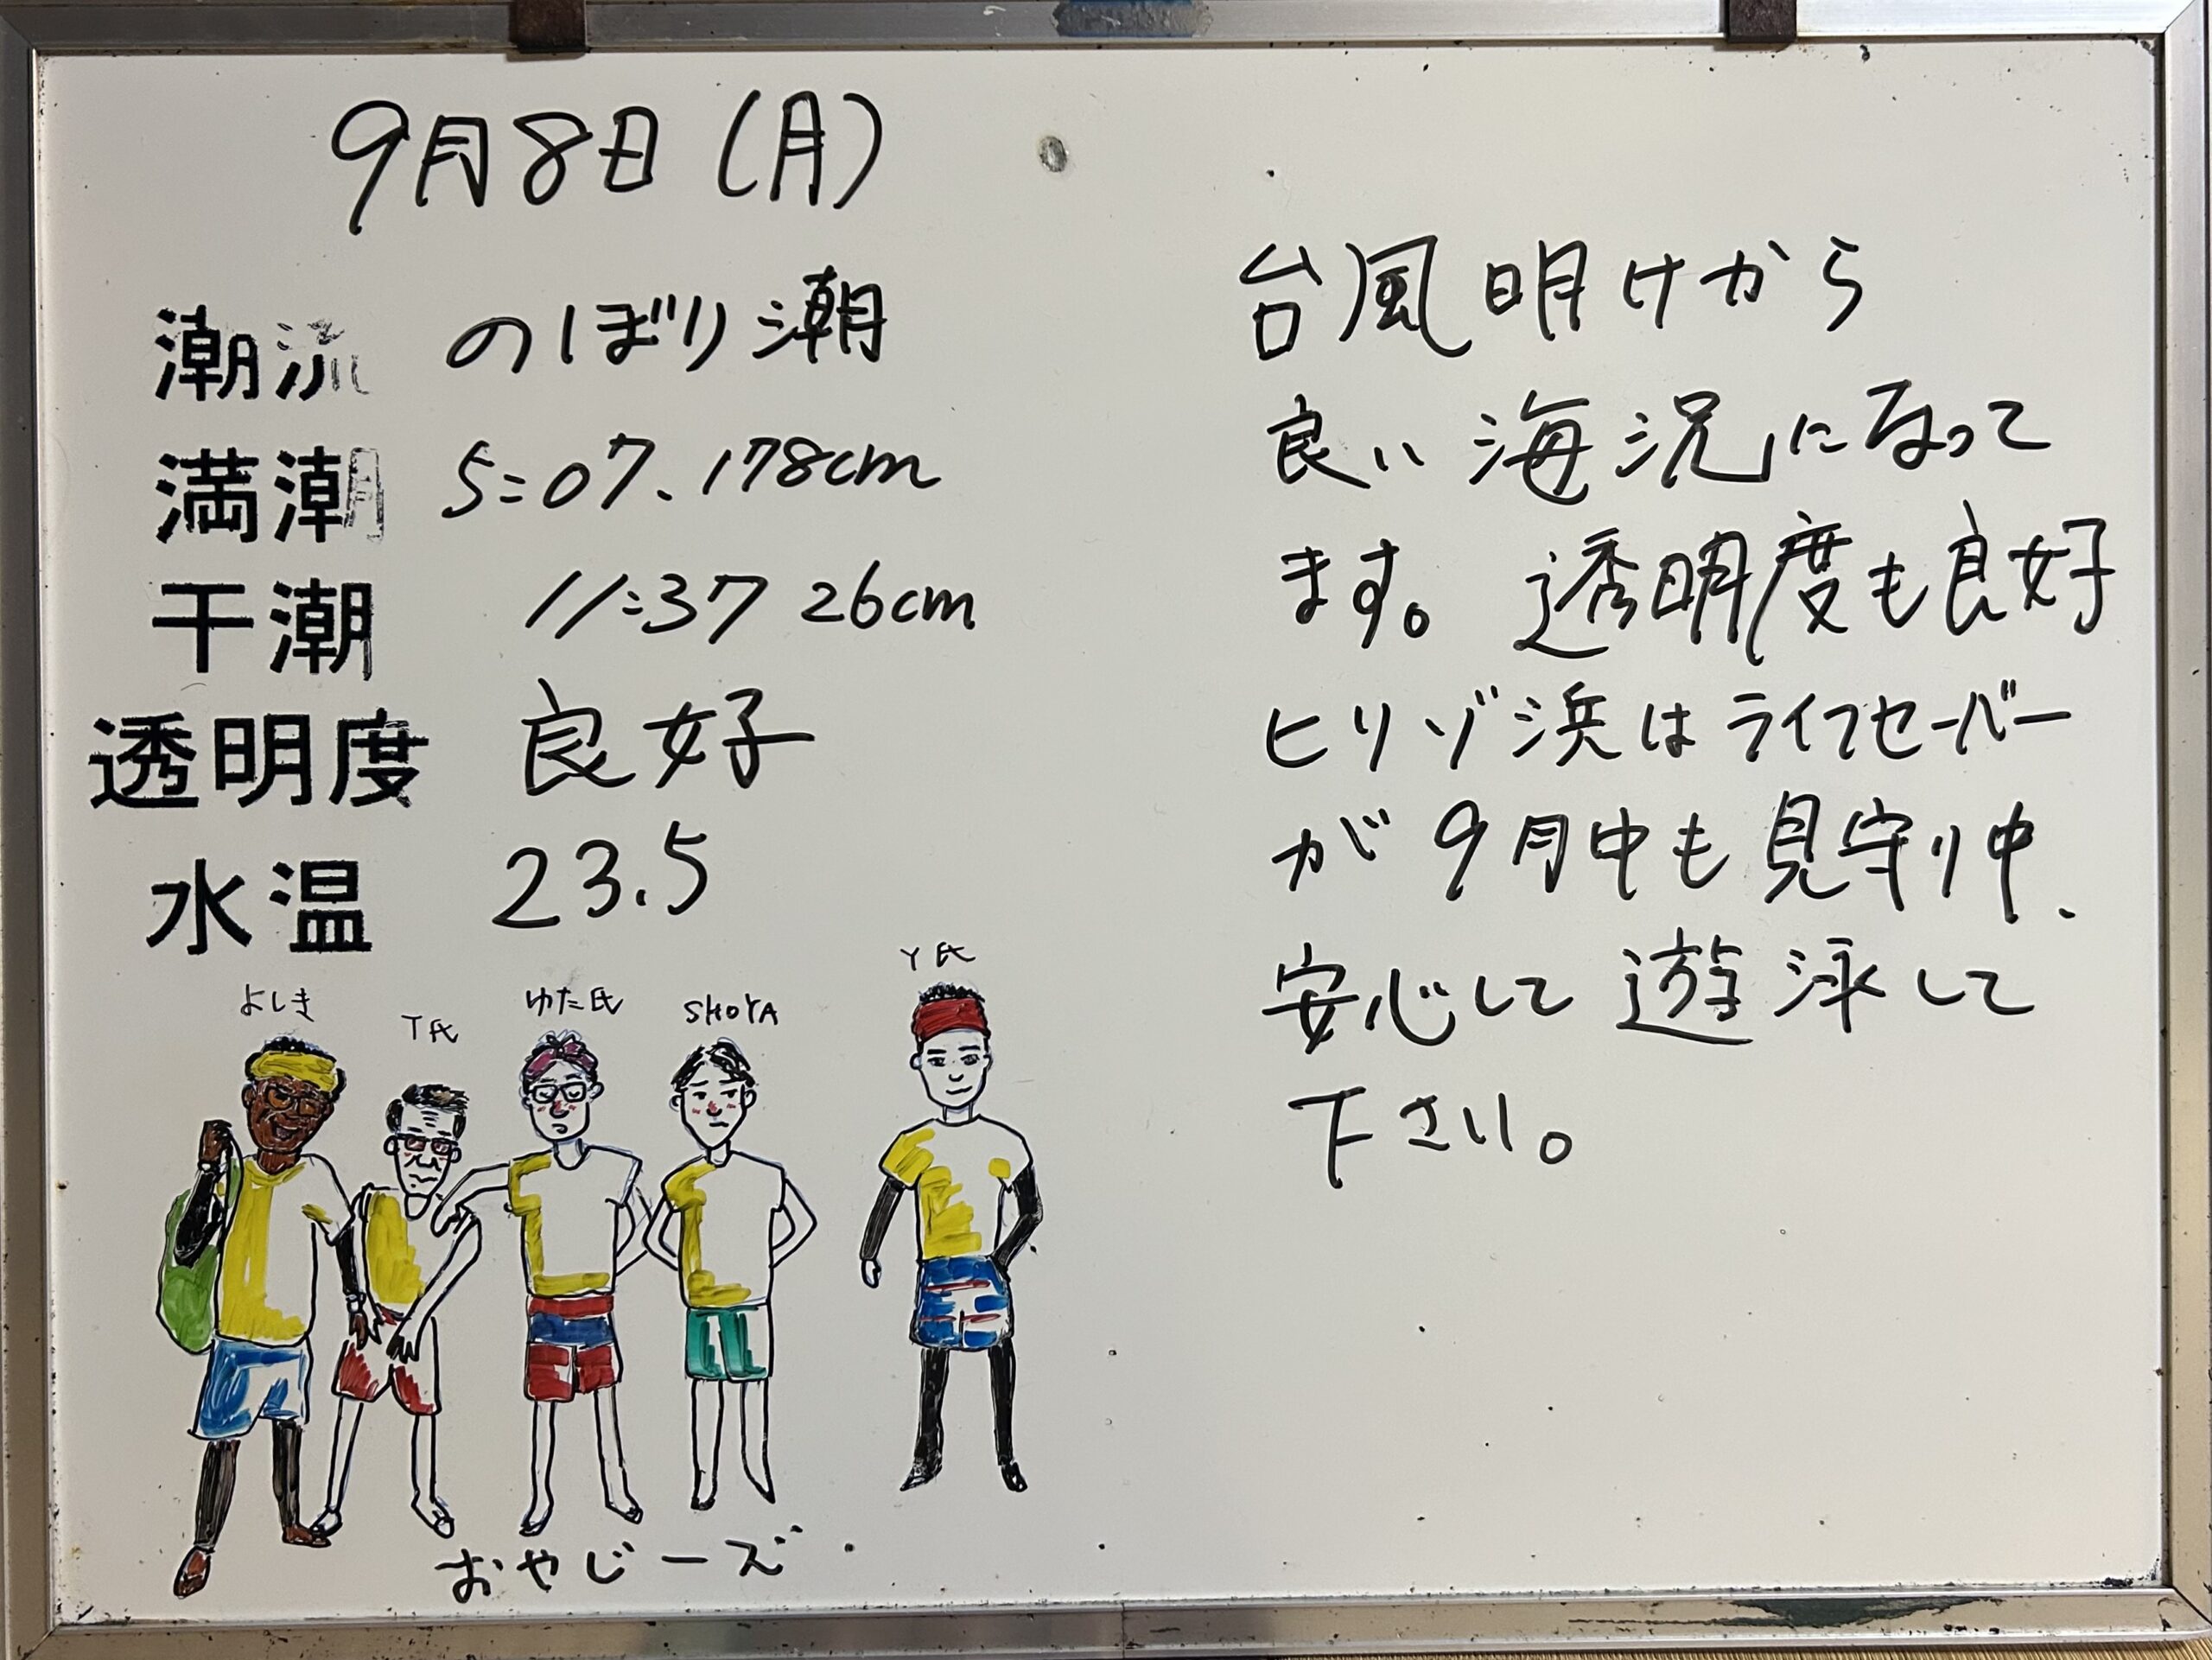 9月8日(月)
潮流 のぼり潮
満潮 5:07、178cm
干潮 11:37 26cm
透明度 良好
水温 23.5
よしき
T氏
ゆた氏
SHOYA
Y氏
おやじーズ
台風明けから
良い海況になって
ます。透明度も良好
ヒリゾ浜はライフセーバー
が9月中も見守り中、
安心して遊泳して
下さい。